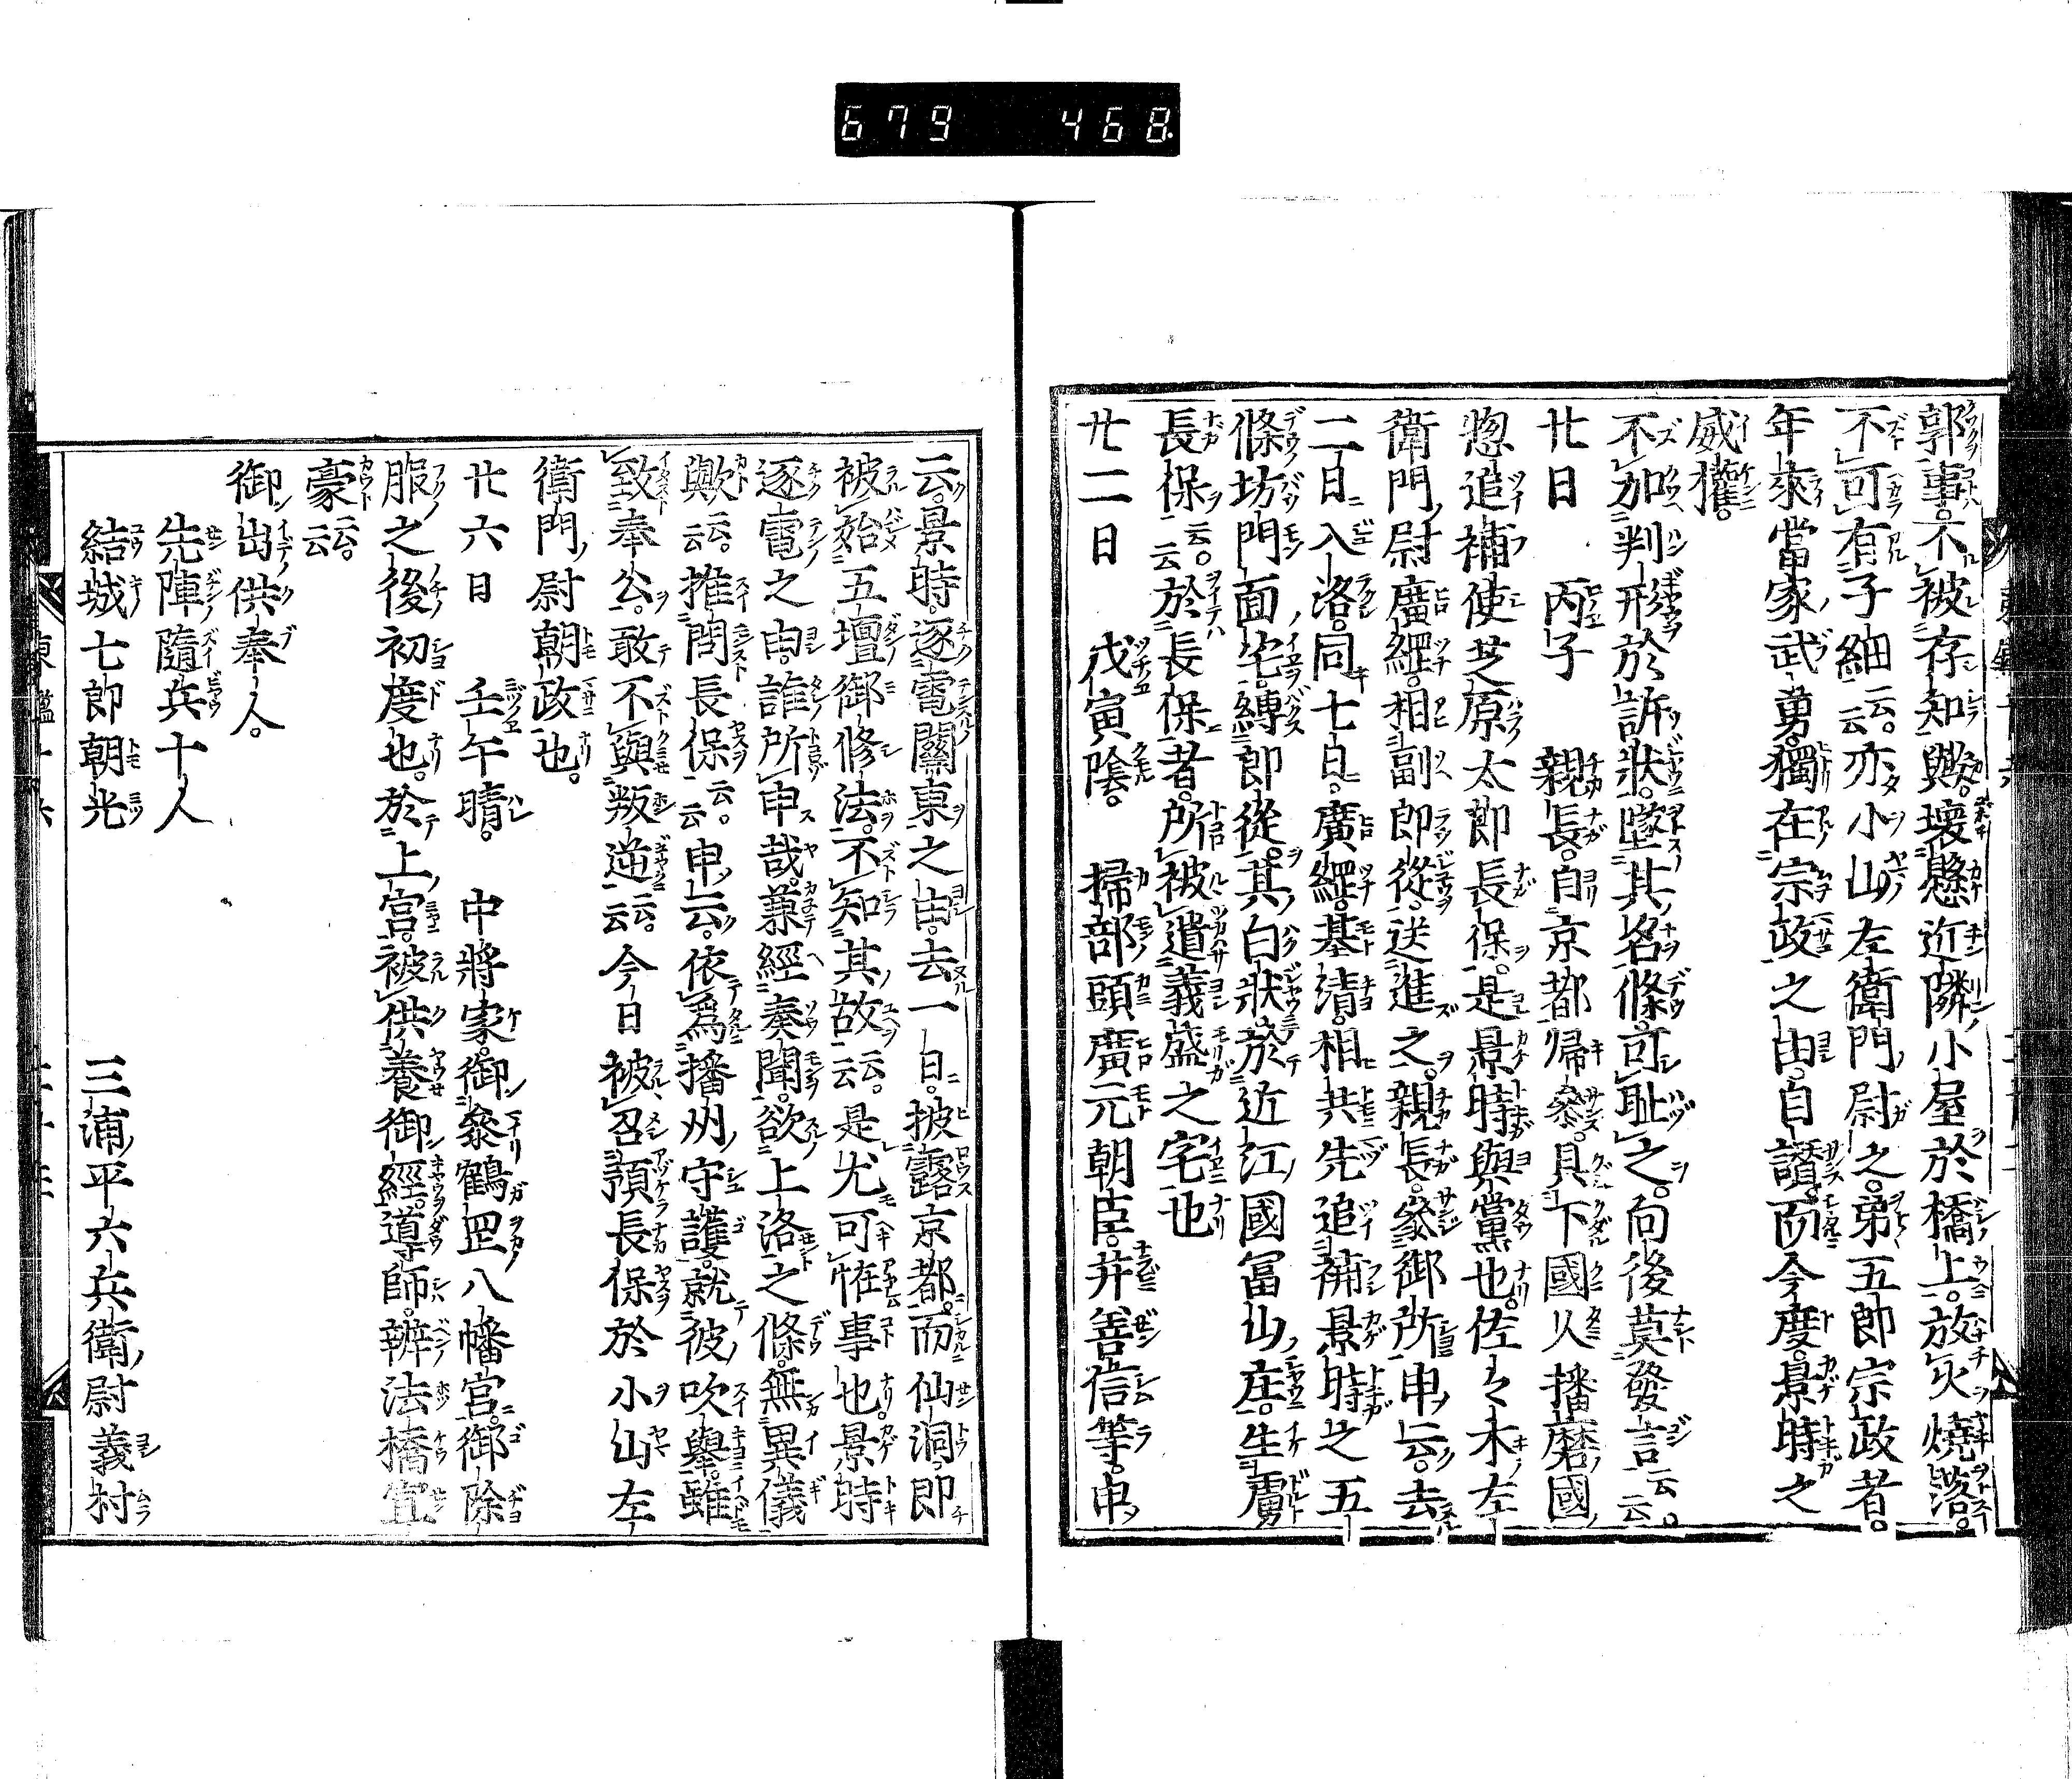 679 468
郭事。不被存知歟。壞懸近隣小屋於橋上。放火燒落。
不可有子細云云。亦小山左衛門尉之弟五郎宗政者。
年來當家武勇。獨在宗政之由。自讃。而今度景時之
威權。
不加判形於訴狀。墜其名條。可恥之。向後莫發言云云。
廿日 丙子 親長。自京都歸參。具下國人播磨國
惣追補使芝原太郎長保。是景時與黨也佐々木左
衛門尉廣綱。相副郎從。送進之。親長。參御所申云。去
二日入洛。同七日。廣綱。基淸。相共先追補景時之五
條坊門面宅。縛郎從。其白狀。於近江國冨山庄。生虜
長保云云。於長保者。所被遣義盛之宅也
廿二日 戊寅陰。 掃部頭廣元朝臣。幷善信等。申
云。景時。逐電關東之由。去一日。披露京都。而仙洞即
被始五壇御修法。不知其故云云。是尤可恠事也。景時
逐電之由。誰所申哉。兼經奏聞。欲上洛之條。無異儀
歟云云。推問長保云云。申云。依爲播州守護。就彼吹擧。雖
致奉公。敢不與叛逆云云。今日被召預長保於小山左
衛門尉朝政也。
廿六日 壬午晴。 中將家。御參鶴罡八幡宮。御除
服之後初度也。於上宮。被供養御經。導師。辨法橋宣
豪云云。
御出供奉人。
先陣隨兵十人
結城七郎朝光 三浦平六兵衛尉義村